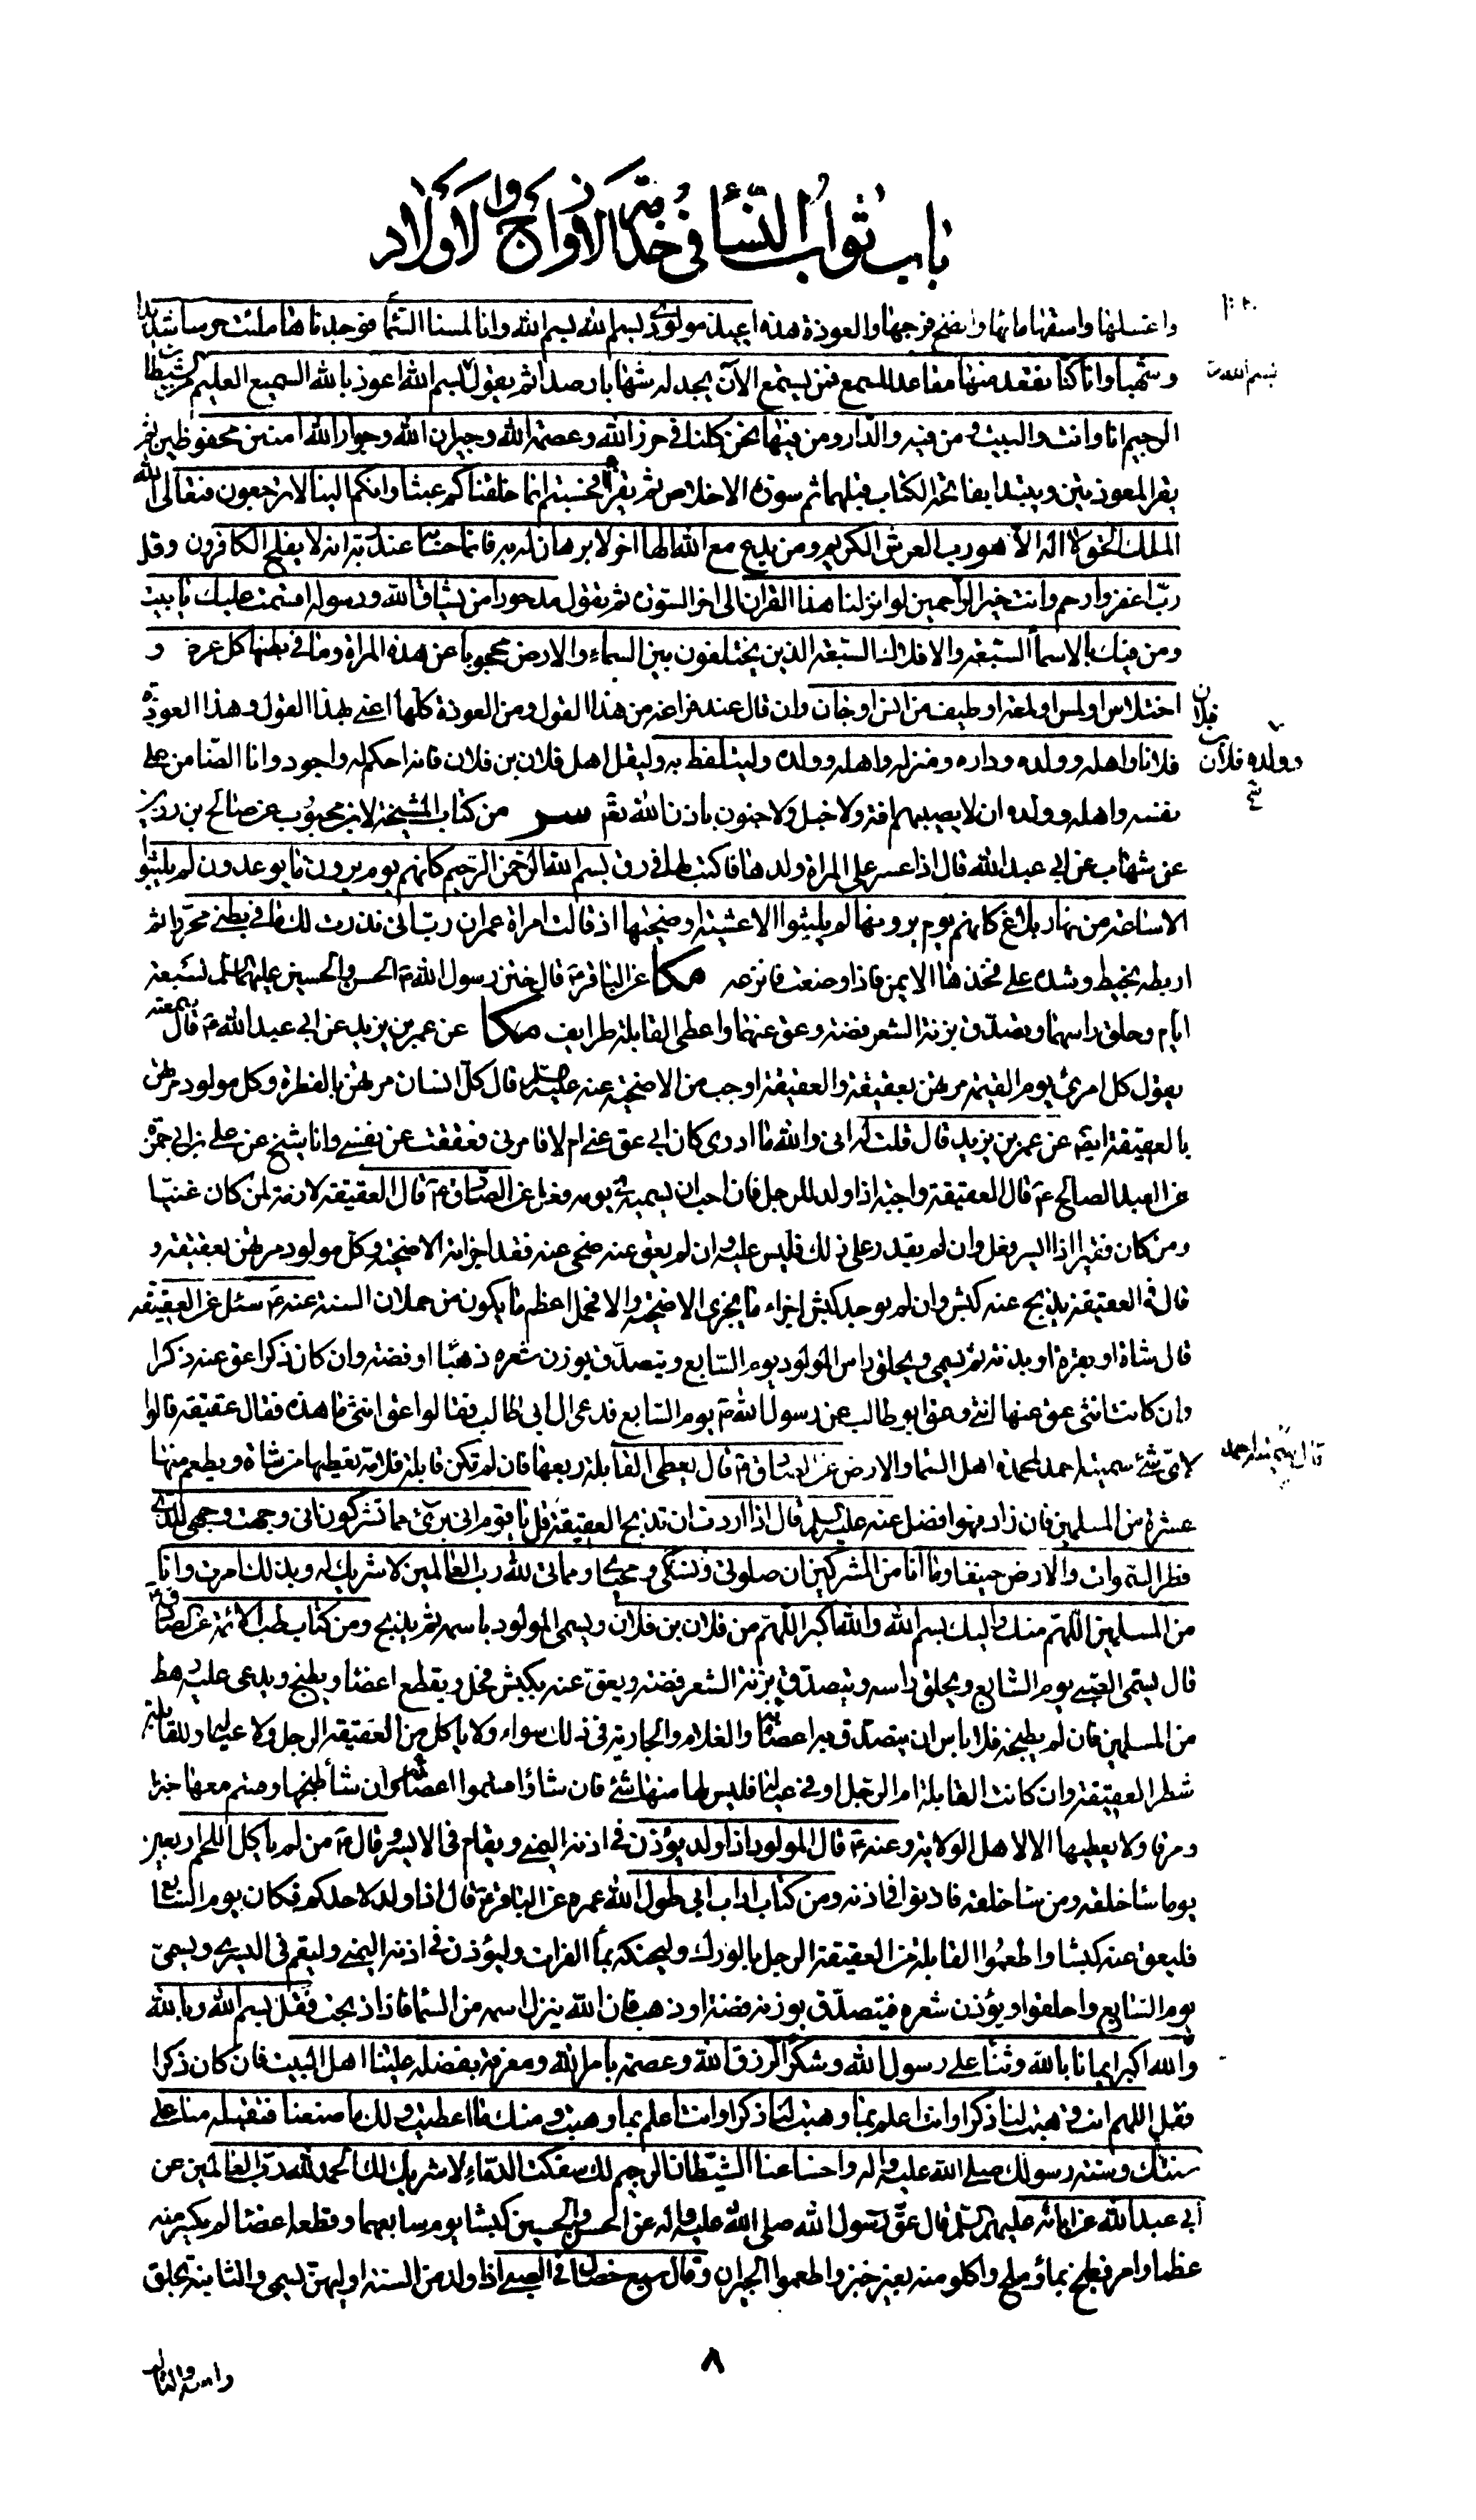 باب ثواب النسا فی خدمة الازواج والاولاد
واغسلها واسقها مائها وانضح فرجها والعوذة هذه اعیذ مولودی بسم الله بسم الله وانا لمسنا السما فوجدناها ملئت حرسا شدیدا
وشهبا وانا کنا نقعد منها مقاعد للسمع فمن یستمع الآن یجد له شهابا رصدا ثم یقول بسم الله اعوذ بالله السمیع العلیم من الشیطان
بسم الله
الرجیم انا وانت والبیت ومن فیه والدار ومن فیها نحن کلنا فی حرز الله وعصمة الله وجیران الله وجوار الله امنین محفوظین ثم
یقر المعوذتین ویبتدا بفاتحة الکتاب قبلهما ثم سورة الاخلاص ثم یقرا افحسبتم انما خلقناکم عبثا وانکم الینا لا ترجعون فتعالی الله
الملک الحق لا اله الا هو رب العرش الکریم ومن یدع مع الله الها اخر لا برهان له به فانما حسابه عند ربه انه لا یفلح الکافرون وقل
رب اغفر وارحم وانت خیر الراحمین لو انزلنا هذا القران الی اخر السورة ثم یقول مدحورا من یشاق الله ورسوله اقسمت علیک یا بیت
ومن فیک بالاسما السبعة والاملاک السبعة الذین یختلفون بین السماء والارض محجوبا عن هذه المراة وما فی بطنها کل عرض و
اختلاس او لمس او لمعة او طیف من انس او جان وان قال عند فراغه من هذا القول ومن العوذة کلها اعنی بهذا القول وهذا العوذة
فلان
فلانا واهله وولده وداره ومنزله واهله وولده ولیتلفظ به ولیقل اهل فلان بن فلان فانه احکم له واجود وانا الضامن علی
وولده فلان بن
نفسه واهله وولده ان لا یصیبهم افة ولا خبل ولا جنون باذن الله تعم من کتاب المشیخة لابن محبوب عن صالح بن رزین
عن شهاب عن ابی عبد الله قال اذا عسر علی المراة ولدها فاکتب لها فی رق بسم الله الرحمن الرحیم کانهم یوم یرون ما یوعدون لم یلبثوا
الا ساعة من نهار بلاغ کانهم یوم یرونها لم یلبثوا الا عشیة او ضحیها اذ قالت امراة عمران رب انی نذرت لک ما فی بطنی محررا ثم
اربطه بخیط وشده علی فخذها الایمن فاذا وضعت فانزعه مکا عن الباقر ع قال ختن رسول الله ص الحسن والحسین علیهما السلم لسبعة
ایام وحلق راسهما وتصدق بزنة الشعر فضة وعق عنهما واعطی القابلة طرایف مکا عن عمر بن یزید عن ابی عبد الله ع قال سمعته
یقول کل امرئ یوم القیمة مرتهن بعقیقة والعقیقة اوجب من الاضحیة عنه علیه السلم قال کل انسان مرتهن بالفطرة وکل مولود مرتهن
بالعقیقة ایضا عن عمر بن یزید قال قلت له انی والله ما ادری کان ابی عق عنی ام لا فامرنی فعققت عن نفسی وانا شیخ عن علی بن ابی حمزة
عن العبد الصالح ع قال العقیقة واجبة اذا ولد للرجل فان احب ان یسمیه فی یومه فعل عن الصادق ع قال العقیقة لازمة لمن کان غنیا
ومن کان فقیرا اذا ایسر فعل وان لم یقدر علی ذلک فلیس علیه وان لم یعق عنه ضحی عنه فقد اجزاته الاضحیة وکل مولود مرتهن بعقیقته و
قال فی العقیقة یذبح عنه کبش وان لم یوجد کبش اجزاء ما یجزی الاضحیة والا فحمل اعظم ما یکون من حملان السنة عنه ع سئل عن العقیقة
قال شاة او بقرة او بدنة ثم یسمی ویحلق راس المولود یوم السابع ویتصدق بوزن شعره ذهبا او فضة وان کان ذکرا عق عنه ذکرا
وان کانت انثی عق عنها انثی وعق ابو طالب عن رسول الله ص یوم السابع فدعی ال ابی طالب فقالوا ما هذه فقال عقیقة قالوا
لای شئ سمیته احمد لمحمدة اهل السما والارض عن الصادق ع قال یعطی القابلة ربعها فان لم تکن قابلة فلامه تعطیها من شاة ویطعم منها
قال سمیته احمد
عشرة من المسلمین فان زاد فهو افضل عنه علیه السلم قال اذا اردت ان تذبح العقیقة قل یا قوم انی برئ مما تشرکون انی وجهت وجهی للذی
فطر السموات والارض حنیفا وما انا من المشرکین ان صلوتی ونسکی ومحیای ومماتی لله رب العالمین لا شریک له وبذلک امرت وانا
من المسلمین اللهم منک والیک بسم الله والله اکبر اللهم من فلان بن فلان ویسمی المولود باسمه ثم یذبح ومن کتاب طب الائمة عن الصادق ع
قال یسمی الصبی یوم السابع ویحلق راسه ویتصدق بزنة الشعر فضة ویعق عنه بکبش فحل ویقطع اعضا ویطبخ ویدعی علیه رهط
من المسلمین فان لم یطبخه فلا باس ان یتصدق به اعضا والغلام والجاریة فی ذلک سواء ولا یاکل من العقیقة الرجل ولا عیاله وللقابلة
شطر العقیقة وان کانت القابلة ام الرجل او فی عیاله فلیس لها منها شئ فان شاؤا قسموا اعضاء وان شا طبخها وقسم معها خبزا
ومرقا ولا یعطیها الا لاهل الولایة وعنه ع قال المولود اذا ولد یؤذن فی اذنه الیمنی ویقام فی الایسر وقال ع من لم یاکل اللحم اربعین
یوما ساء خلقه ومن ساء خلقه فاذنوا فی اذنه ومن کتاب اداب ابی طول الله عمره عن الباقر ع قال اذا ولد لاحدکم فکان یوم السابع
فلیعق عنه کبشا واطعموا القابلة من العقیقة الرجل بالورک ولیحنکه بماء الفرات ولیؤذن فی اذنه الیمنی ولیقم فی الیسری ویسمی
یوم السابع واحلقوا ویوزن شعره فیتصدق بوزنه فضة او ذهب فان الله ینزل اسمه من السما فاذا ذبحت فقل بسم الله وبالله
والله اکبر ایمانا بالله وثنا علی رسول الله وشکرا لرزق الله وعصمة بامر الله ومعرفة بفضله علینا اهل البیت فان کان ذکرا
فقل اللهم انت وهبت لنا ذکرا وانت اعلم بما وهبت لنا ذکرا وانت اعلم بما وهبت ومنک ما اعطیت ولک ما صنعنا فتقبله منا علی
سنتک وسنة رسولک صلی الله علیه واله واخسا عنا الشیطان الرجیم لک سفکت الدماء لا شریک لک الحمد لله رب العالمین عن
ابی عبد الله عن ابائه علیهم السلم قال عق رسول الله صلی الله علیه واله عن الحسن والحسین کبشا یوم سابعهما وقطعه اعضا لم یکسر منه
عظما وامر فطبخ بماء وملح واکلو منه بغیر خبز واطعموا الجیران وقال سبع خصال فی الصبی اذا ولد من السنة اولیهن یسمی والثانیة یحلق
٨